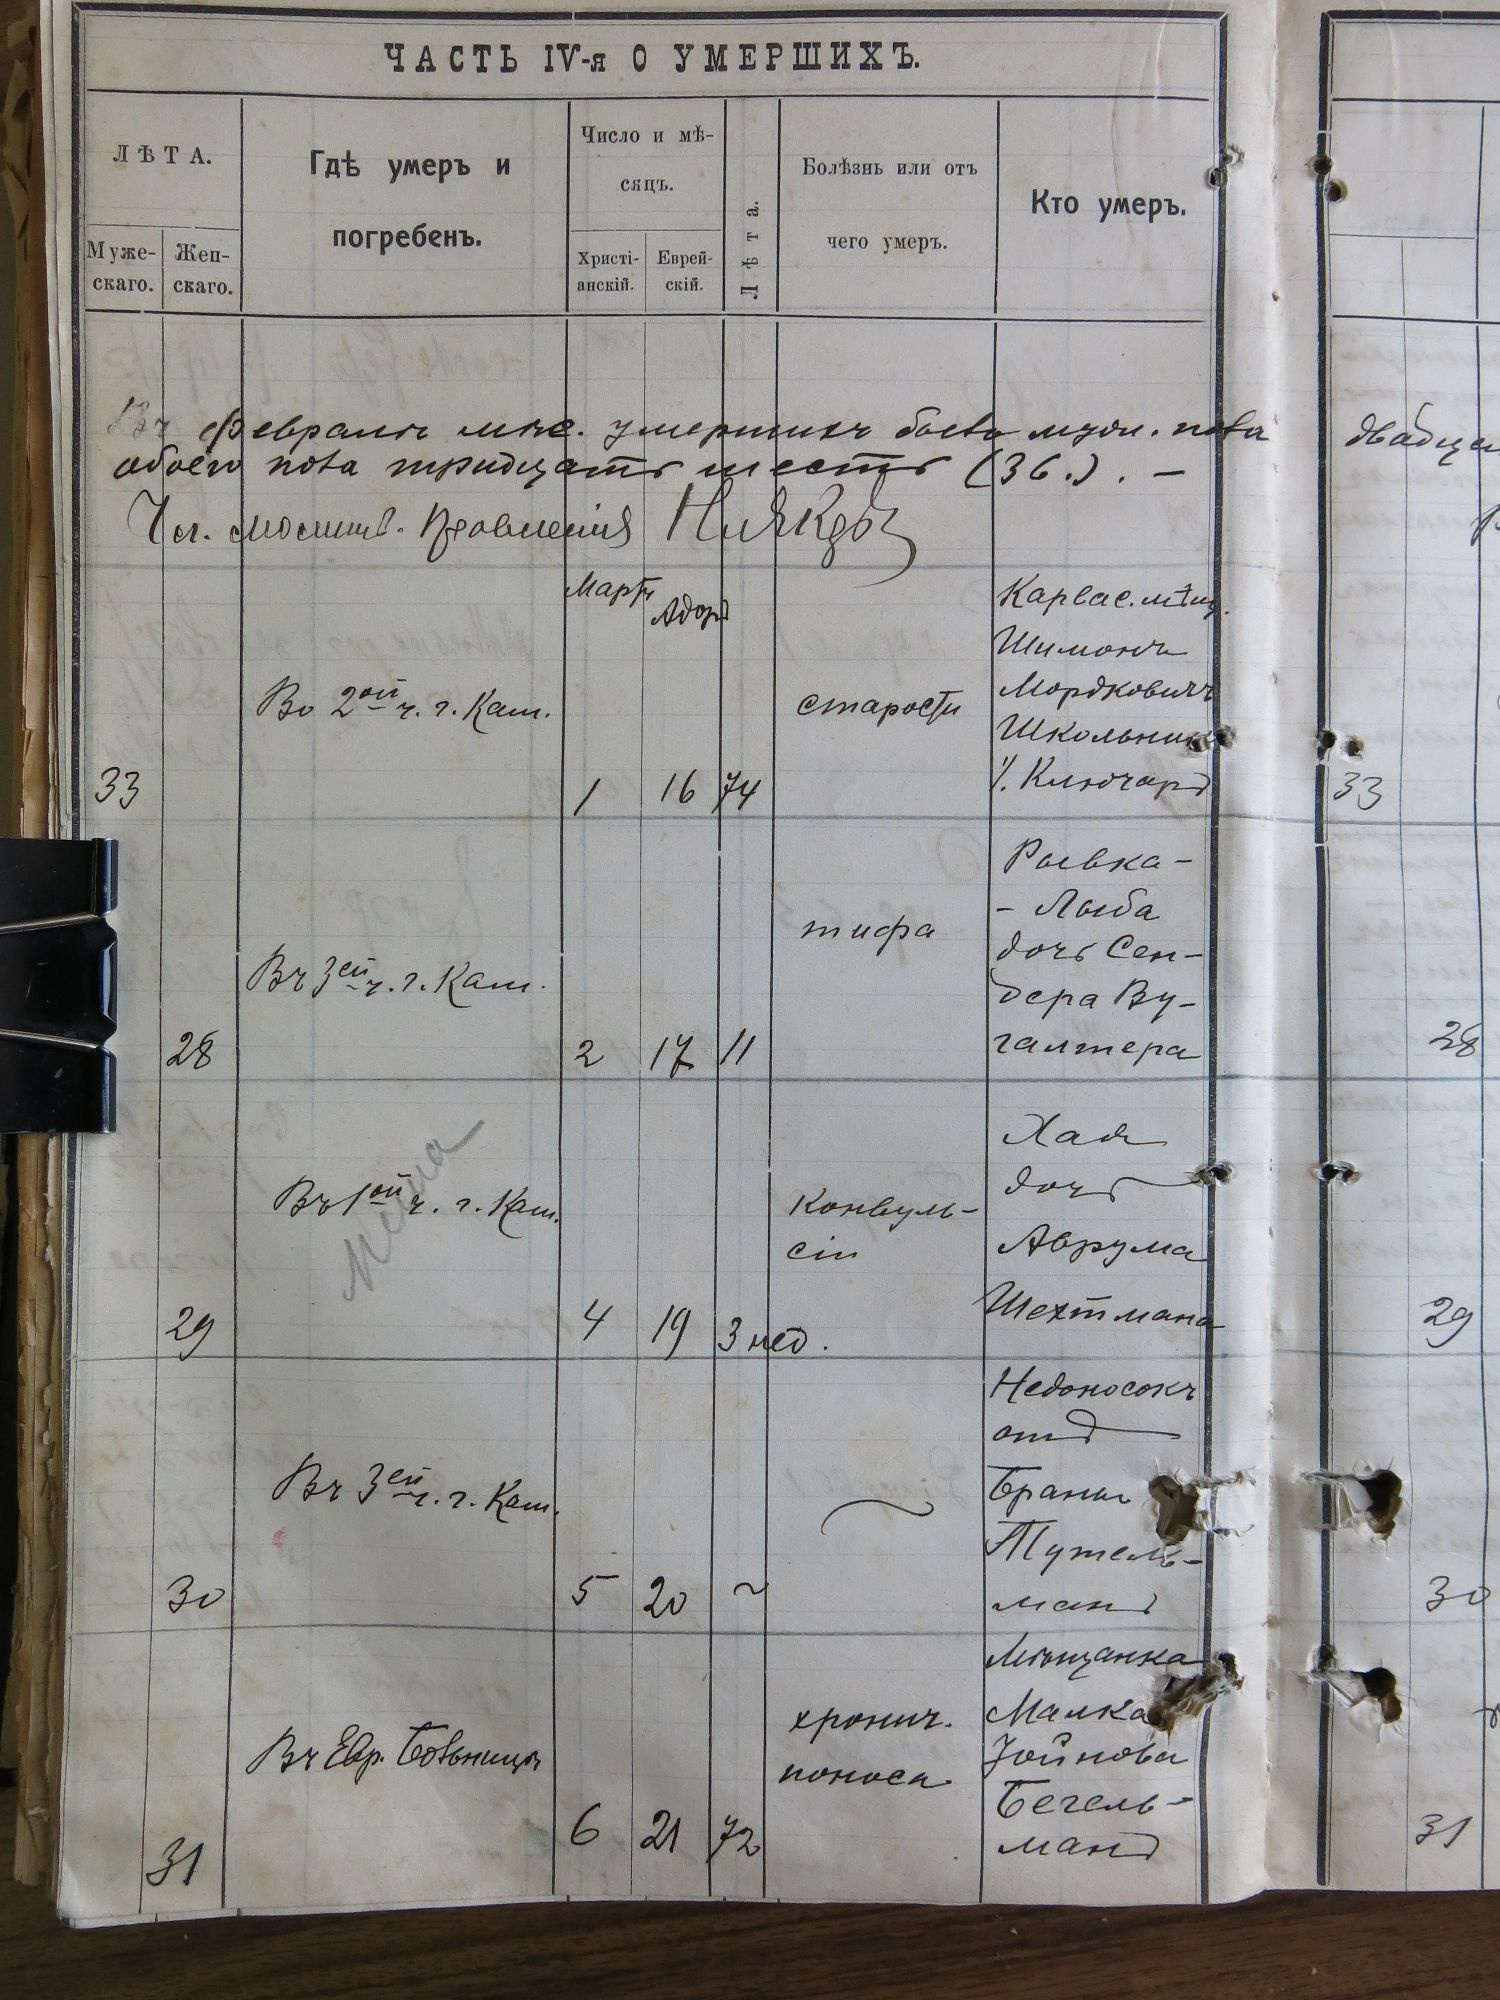 ЧАСТЬ IV-я О УМЕРШИХЪ.
ЛѢТА.
Муже-
скаго.
Жен-
скаго.
Гдѣ умеръ и
погребенъ.
Число и мѣ-
сяцъ.
Христі-
анскій.
Еврей-
скій.
Лѣта.
Болѣзнь или отъ
чего умеръ.
Кто умеръ.
Въ февралѣ мѣс. умершихъ было муж. пола
обоего пола тридцать шесть (36.). —
Чл. молитв. Правленія
двадца
Мартъ
Адоръ
Карвас. мѣщ.
Шимонъ
Мордковичъ
Школьник
Ключаръ
Во 2ой ч. г. Кам.
старости
33
1
16
74
33
Рывка-
- Лыба
дочь Сен-
дера Бу-
галтера
тифа
Въ 3ей ч. г. Кам.
28
2
17
11
28
Хая
дочь
Аврума
Шехтмана
Въ 1ой ч. г. Кам.
конвуль-
сіи
29
4
19
3 нед.
29
Недоносокъ
отъ
Браны
Тутель-
манъ
Въ 3ей ч. г. Кам.
30
5
20
~
30
Мѣщанка
Малка
Іойнова
Бегель-
манъ
Въ Евр. Больницѣ
хронич.
поноса
31
6
21
72
31